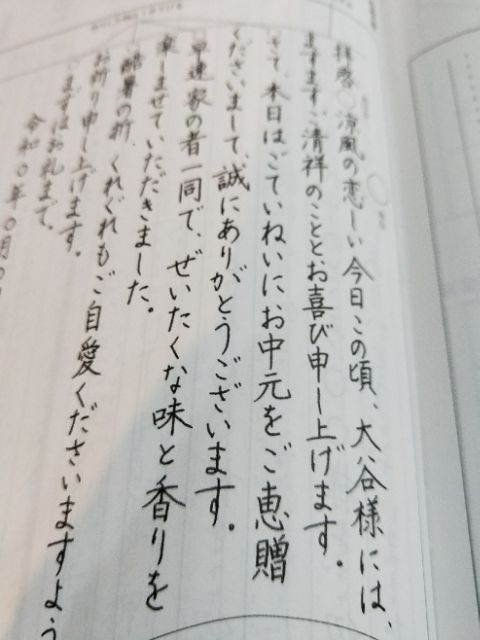 拝啓 涼風の恋しい今日この頃、大谷様には、
ますますご清祥のこととお喜び申し上げます。
さて、本日はごていねいにお中元をご恵贈
くださいまして、誠にありがとうございます。
早速家の者一同で、ぜいたくな味と香りを
楽しませていただきました。
酷暑の折、くれぐれもご自愛くださいますよう
お祈り申し上げます。
まずはお礼まで。
令和〇年〇月〇